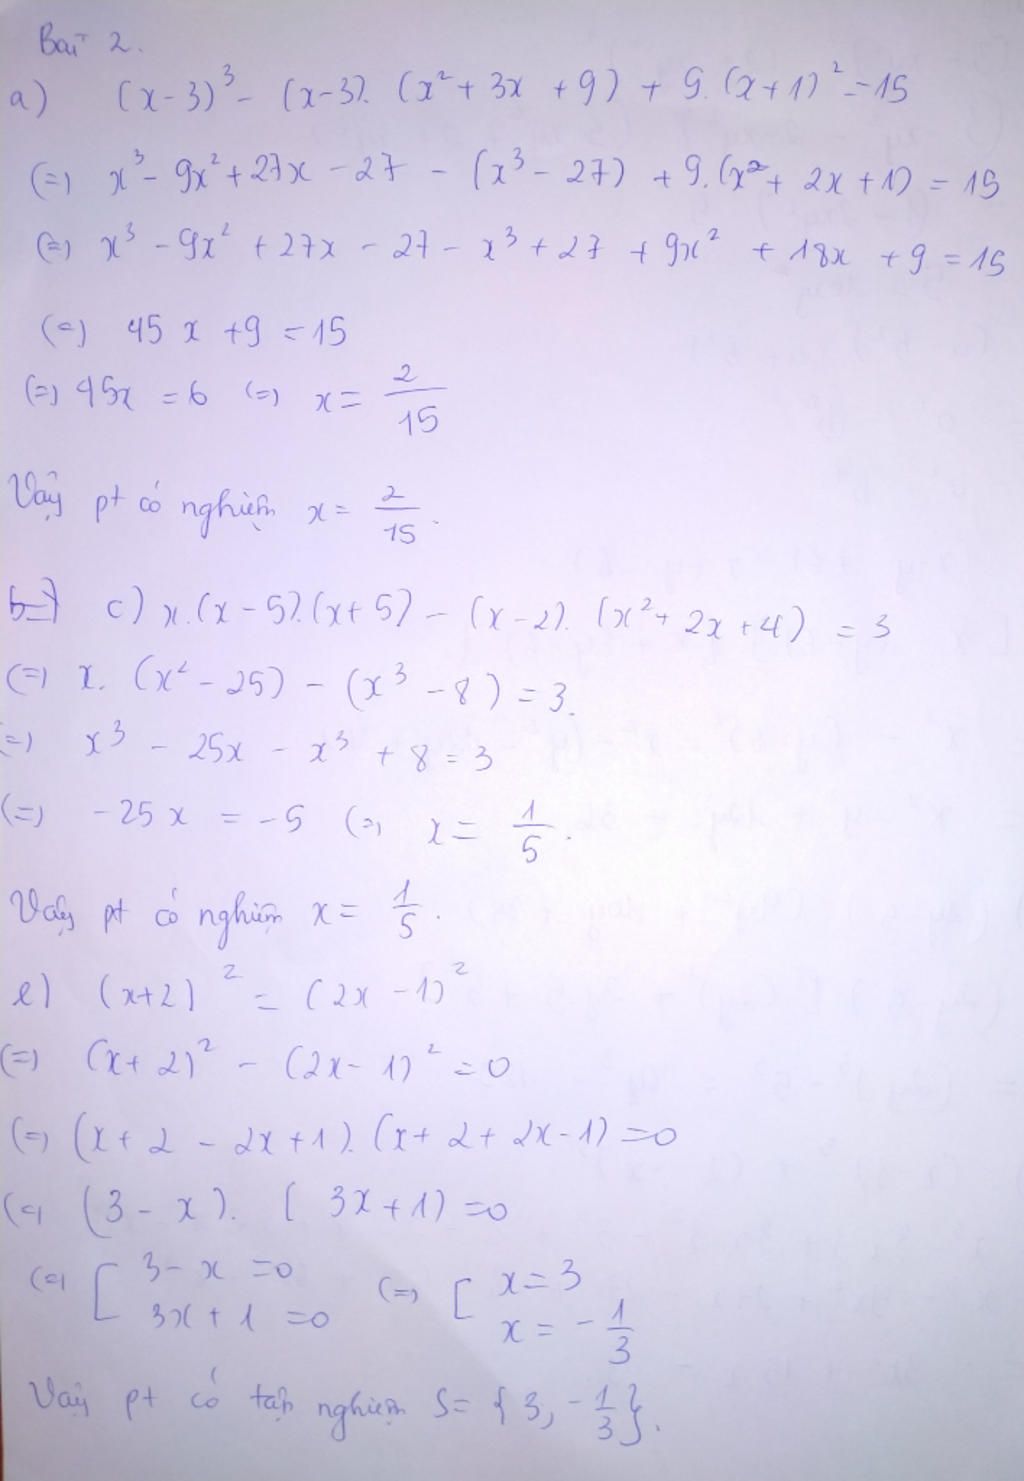 Bài 2.
a) (x-3)³ - (x-3). (x² + 3x + 9) + 9. (x+1)² = 15
(=) x³ - 9x² + 27x - 27 - (x³ - 27) + 9. (x² + 2x + 1) = 15
(=) x³ - 9x² + 27x - 27 - x³ + 27 + 9x² + 18x + 9 = 15
(=) 45x + 9 = 15
(=) 45x = 6 (=) x = 2/15
Vậy pt có nghiệm x = 2/15.
c) x. (x - 5). (x + 5) - (x - 2). (x² + 2x + 4) = 3
(=) x. (x² - 25) - (x³ - 8) = 3.
(=) x³ - 25x - x³ + 8 = 3
(=) -25x = -5 (=) x = 1/5.
Vậy pt có nghiệm x = 1/5.
e) (x+2)² = (2x - 1)²
(=) (x + 2)² - (2x - 1)² = 0
(=) (x + 2 - 2x + 1). (x + 2 + 2x - 1) = 0
(=) (3 - x). (3x + 1) = 0
(=) [ 3 - x = 0 (=) [ x = 3
3x + 1 = 0 x = -1/3
Vậy pt có tập nghiệm S = {3, -1/3}.